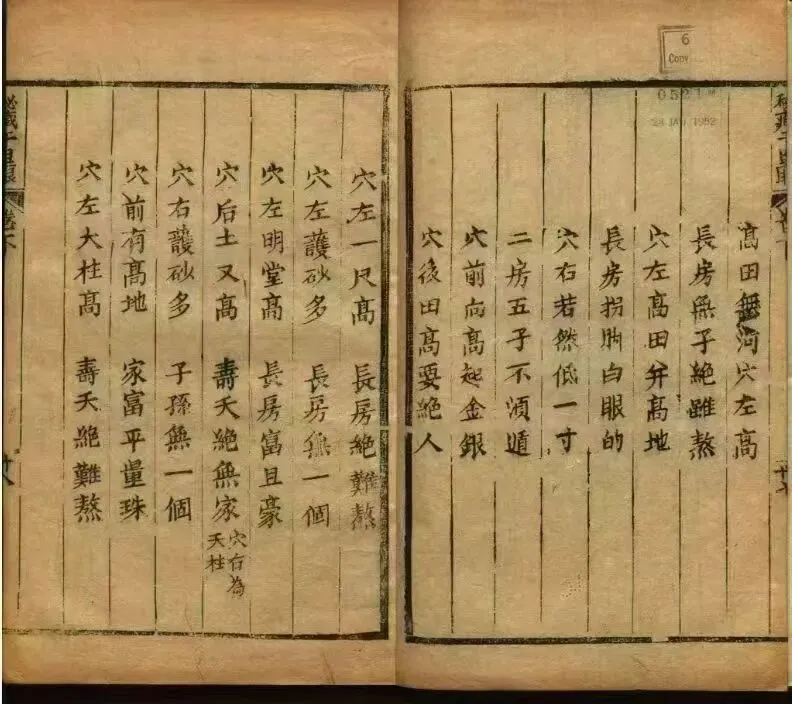 6
Copy
髙田無河穴左高
長房無子絕雖熬
穴左高田并高地
長房拐脚白眼的
穴右若然低一寸
二房五子不湏遁
穴前向高起金銀
穴後田高要絕人
穴左一尺高 長房絕難熬
穴左護砂多 長房無一個
穴左明堂高 長房富且豪
穴后土又高 壽夭絕無家 穴右為天柱
穴右護砂多 子孫無一個
穴前有高地 家富平量珠
穴左大柱高 壽夭絕難熬